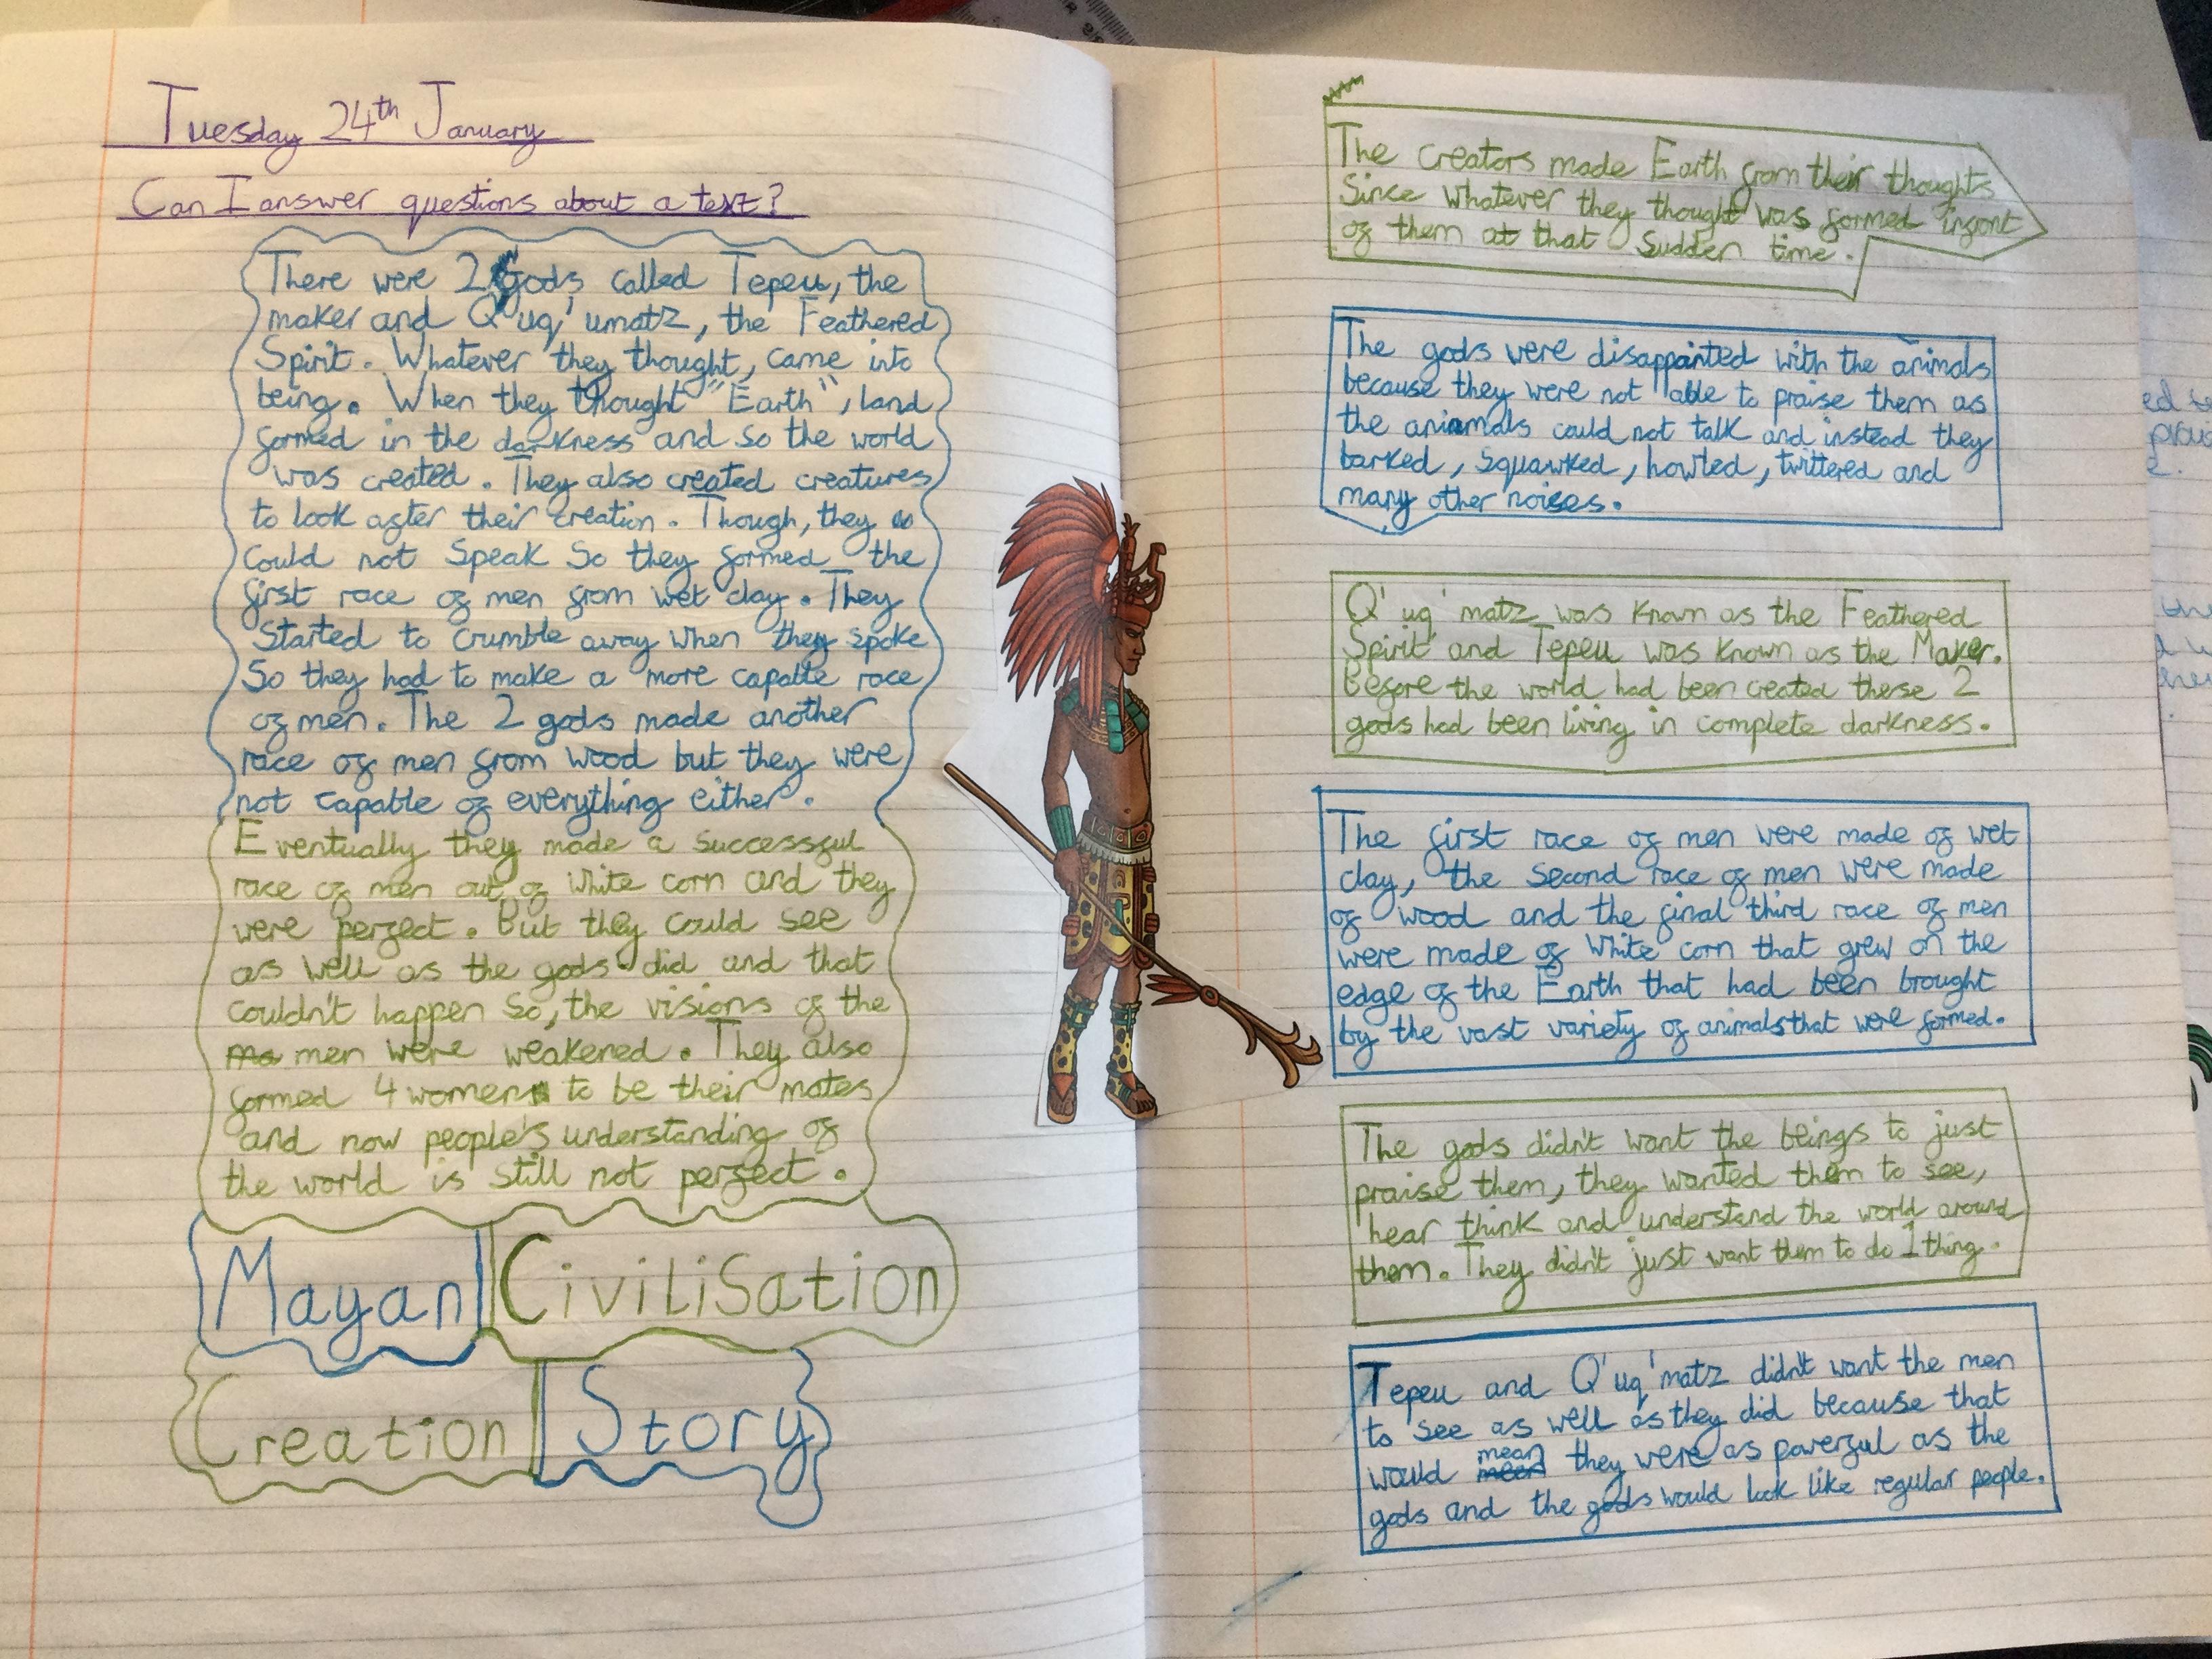 Tuesday 24th January
Can I answer questions about a text?
There were 2 gods called Tepeu, the
maker and Q'uq'umatz, the Feathered
Spirit. Whatever they thought, came into
being. When they thought "Earth", land
formed in the darkness and so the world
was created. They also created creatures
to look after their creation. Though, they
could not speak so they formed the
first race of men from wet clay. They
started to crumble away when they spoke
So they had to make a more capable race
of men. The 2 gods made another
race of men from wood but they were
not capable of everything either.
Eventually they made a successful
race of men out of white corn and they
were perfect. But they could see
as well as the gods did and that
couldn't happen so, the visions of the
men were weakened. They also
formed 4 women to be their mates
and now people's understanding of
the world is still not perfect.
Mayan Civilisation
Creation Story
The creators made Earth from their thoughts
Since whatever they thought was formed infront
of them at that sudden time.
The gods were disappointed with the animals
because they were not able to praise them as
the animals could not talk and instead they
barked, squawked, howled, twittered and
many other noises.
Q'uq'matz was known as the Feathered
Spirit and Tepeu was known as the Maker.
Before the world had been created these 2
gods had been living in complete darkness.
The first race of men were made of wet
clay, the second race of men were made
of wood and the final third race of men
were made of white corn that grew on the
edge of the Earth that had been brought
by the vast variety of animals that were formed.
The gods didn't want the beings to just
praise them, they wanted them to see,
hear think and understand the world around
them. They didn't just want them to do 1 thing.
Tepeu and Q'uq'matz didn't want the men
to see as well as they did because that
would mean they were as powerful as the
gods and the gods would look like regular people.